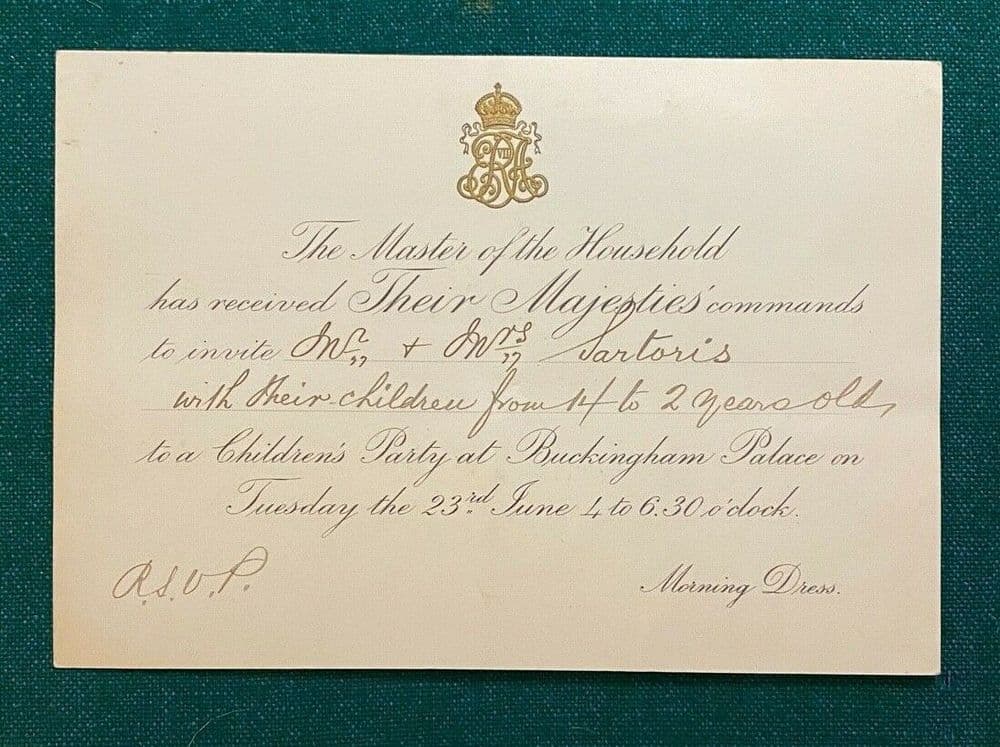 ERA VII
The Master of the Household
has received Their Majesties' commands
to invite Mr. + Mrs. Sartoris
with their children from 14 to 2 years old,
to a Children's Party at Buckingham Palace on
Tuesday the 23rd June 4 to 6.30 o'clock.
R.S.V.P.
Morning Dress.